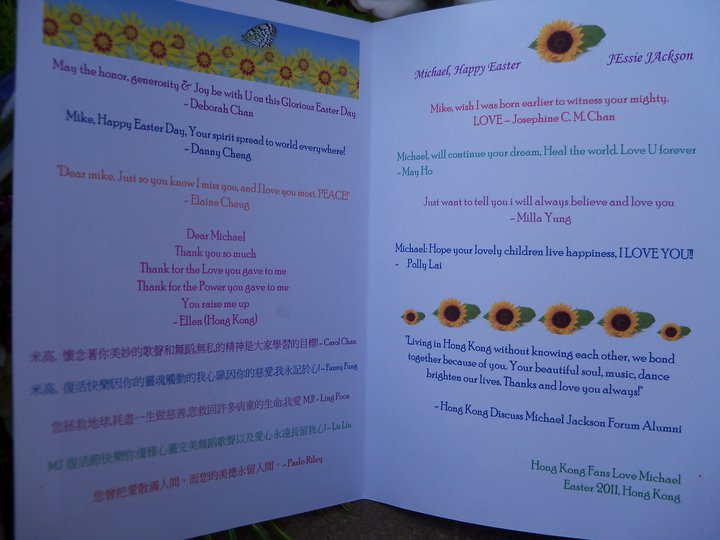 May the honor, generosity & Joy be with U on this Glorious Easter Day
- Deborah Chan
Mike, Happy Easter Day, Your spirit spread to world everywhere!
- Danny Cheng
"Dear mike, Just so you know I miss you, and I love you most. PEACE!"
- Elaine Cheug
Dear Michael
Thank you so much
Thank for the Love you gave to me
Thank for the Power you gave to me
You raise me up
- Ellen (Hong Kong)
米高, 懷念著你美妙的歌聲和舞蹈,無私的精神是大家學習的目標! - Carol Chan
米高, 復活快樂!因你的靈魂觸動的我心扉,因你的慈愛,我永記於心! - Fanny Fung
您拯救地球,耗盡一生做慈善,您救回許多病童的生命,我愛 MJ! - Ling Poon
MJ 復活節快樂!你優雅心靈完美舞蹈歌聲以及愛心永遠長留我心! - Liz Liu
您曾把愛散滿人間，而您的美德永留人間。 - Pazlo Riley
Michael, Happy Easter JEssie JAckson
Mike, wish I was born earlier to witness your mighty.
LOVE - Josephine C. M. Chan
Michael, will continue your dream, Heal the world. Love U forever
- May Ho
Just want to tell you i will always believe and love you
- Milla Yung
Michael: Hope your lovely children live happiness, I LOVE YOU!!
- Polly Lai
"Living in Hong Kong without knowing each other, we bond
together because of you. Your beautiful soul, music, dance
brighten our lives. Thanks and love you always!"
- Hong Kong Discuss Michael Jackson Forum Alumni
Hong Kong Fans Love Michael
Easter 2011, Hong Kong